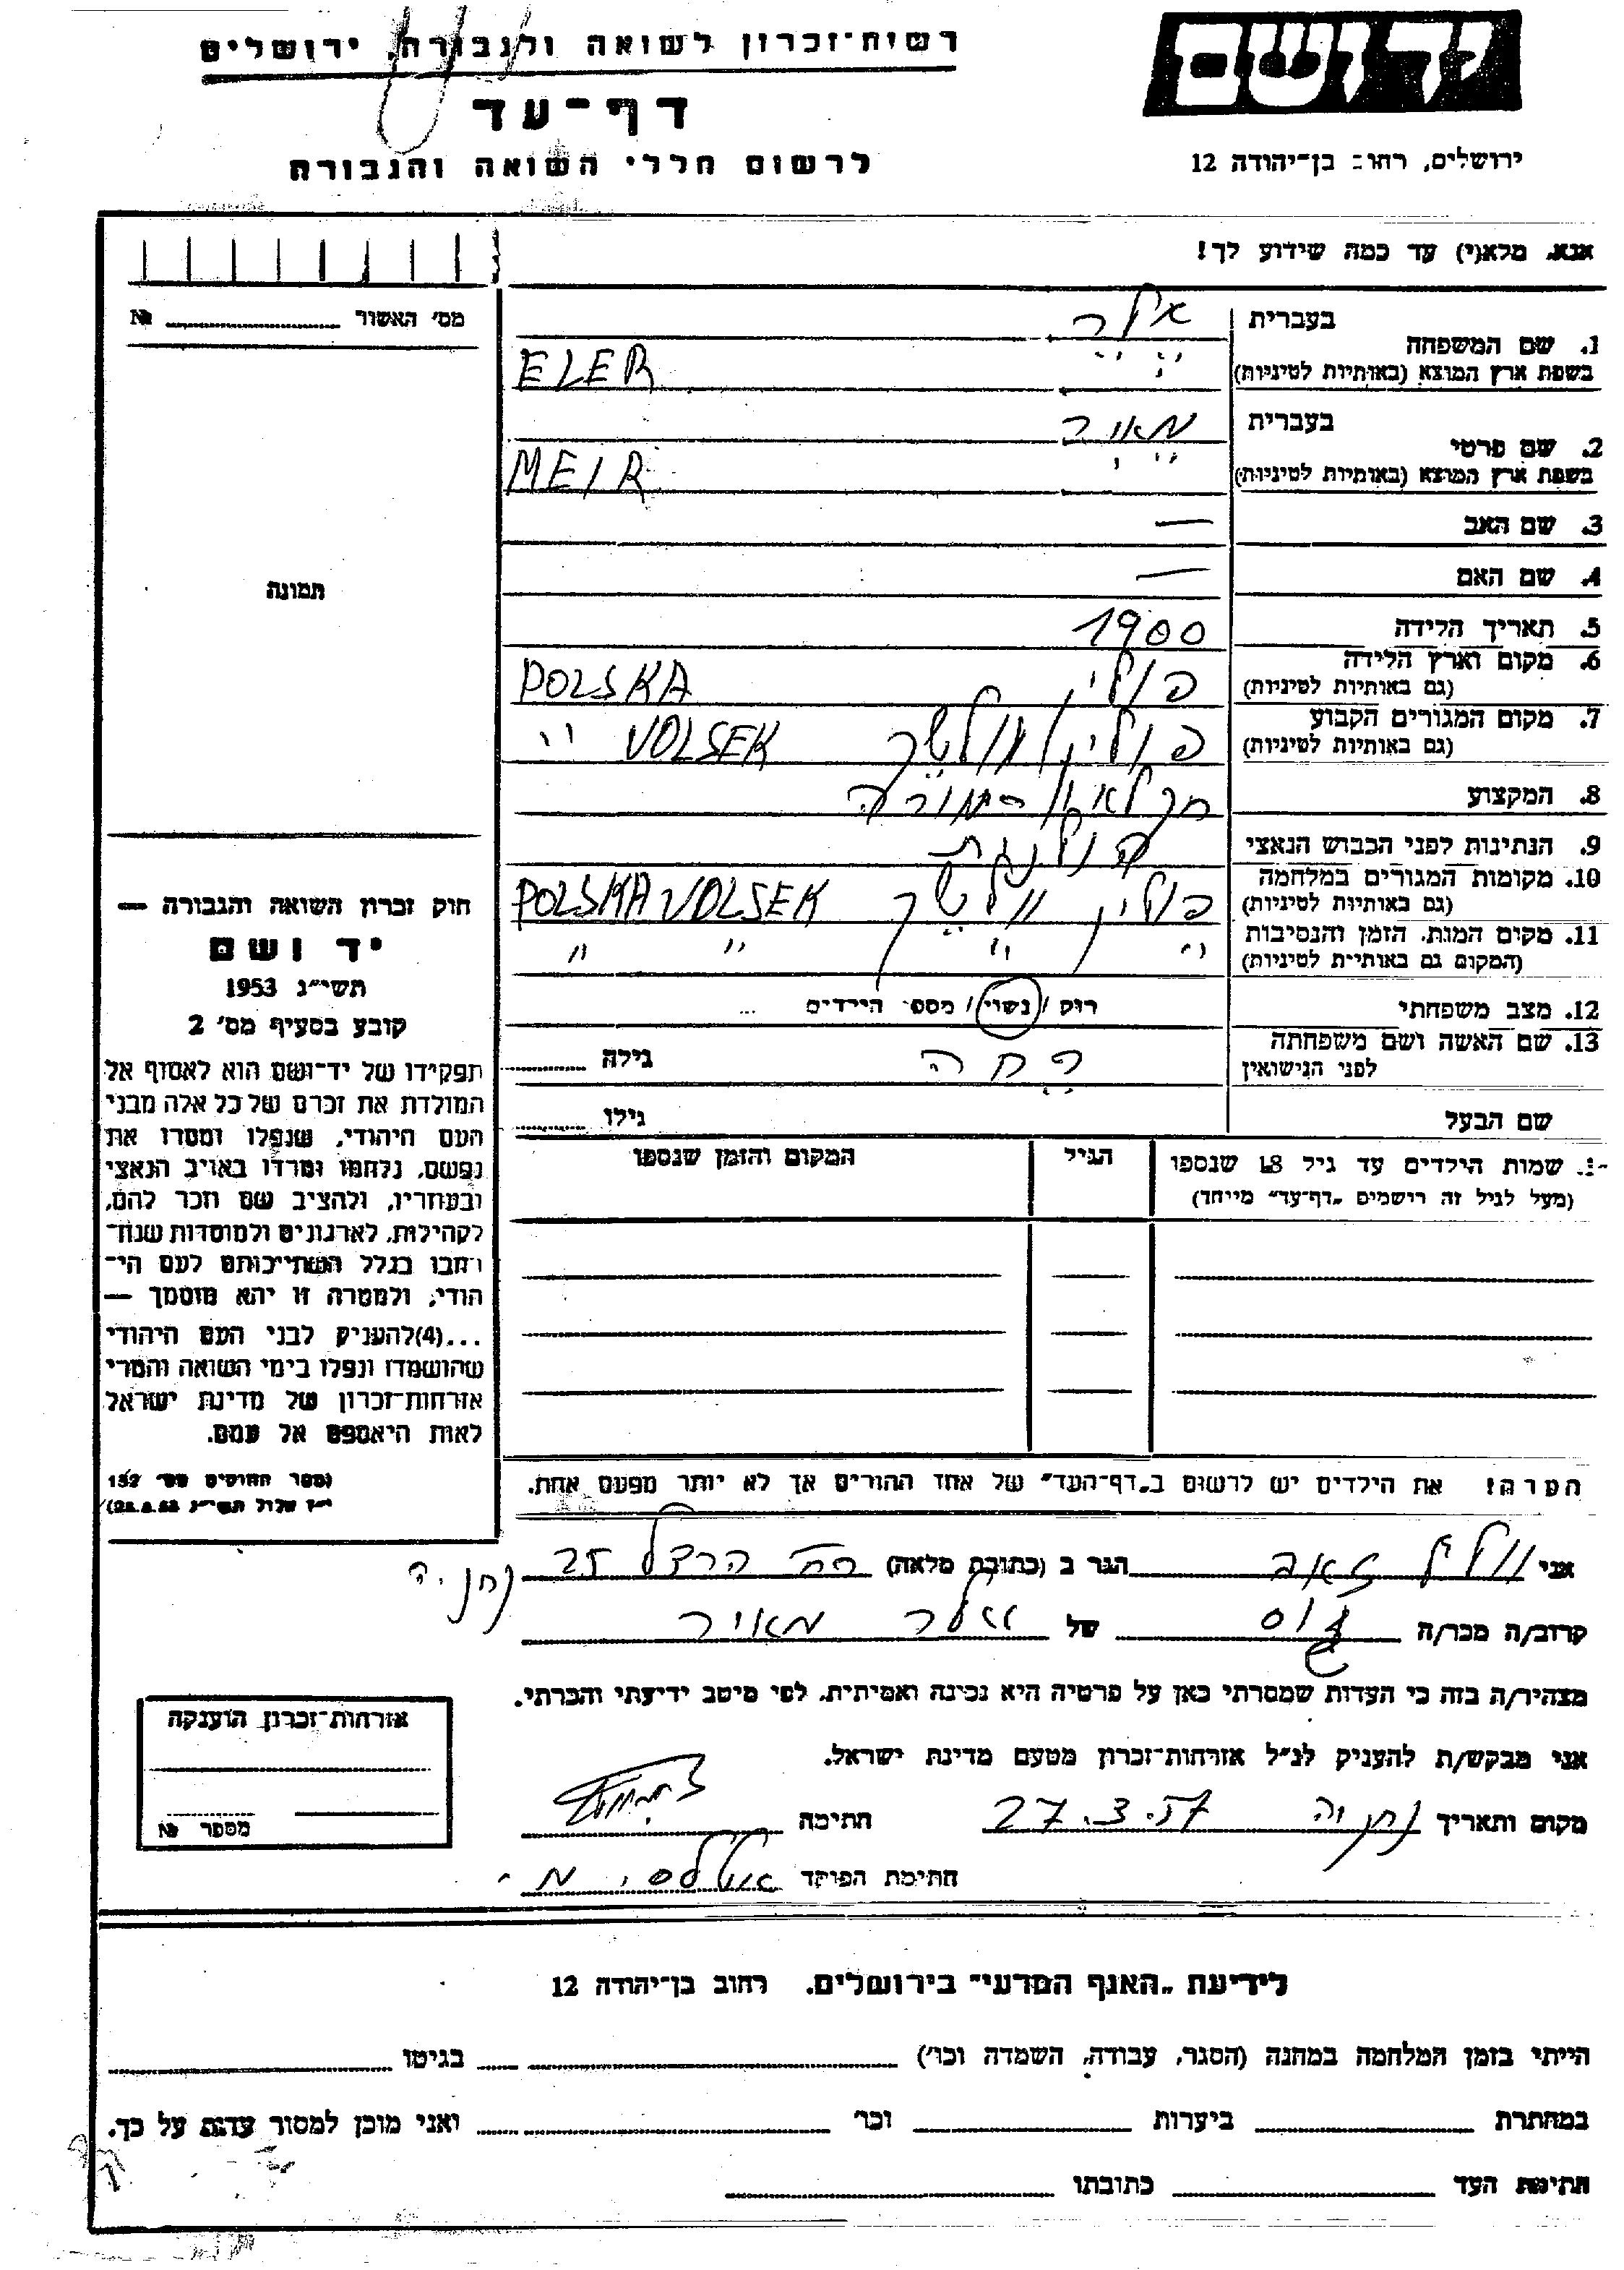 יד ושם
רשות־זכרון לשואה ולגבורה, ירושלים
דף־עד
לרשום חללי השואה והגבורה
ירושלים, רחוב בן־יהודה 12
אנא, מלא(י) עד כמה שידוע לך!
מס' האשור №
תמונה
1. שם המשפחה
בעברית אלר
בשפת ארץ המוצא (באותיות לטיניות) ELER
2. שם פרטי
בעברית מאיר
בשפת ארץ המוצא (באותיות לטיניות) MEIR
3. שם האב —
4. שם האם —
5. תאריך הלידה 1900
6. מקום וארץ הלידה פולין POLSKA
(גם באותיות לטיניות)
7. מקום המגורים הקבוע פולין VOLSEK "
(גם באותיות לטיניות)
8. המקצוע
9. הנתינות לפני הכבוש הנאצי פולנית
10. מקומות המגורים במלחמה פולין POLSKA VOLSEK
(גם באותיות לטיניות)
11. מקום המות, הזמן והנסיבות " " " "
(המקום גם באותיות לטיניות)
12. מצב משפחתי רוק / נשוי / מספר הילדים ...
13. שם האשה ושם משפחתה
לפני הנישואין גילה
שם הבעל גילו
שמות הילדים עד גיל 18 שנספו הגיל המקום והזמן שנספו
(מעל לגיל זה רישמים "דף־עד" מייחד)
חוק זכרון השואה והגבורה —
יד ושם
תשי"ג 1953
קובע בסעיף מס' 2
תפקידו של יד־ושם הוא לאסוף אל
המולדת את זכרם של כל אלה מבני
העם היהודי, שנפלו ומסרו את
נפשם, נלחמו ומרדו באויב הנאצי
ובעוזריו, ולהציב שם וזכר להם,
לקהילות, לארגונים ולמוסדות שנח־
רבו בגלל השתייכותם לעם הי־
הודי, ולמטרה זו יהא מוסמך —
...(4)להעניק לבני העם היהודי
שהושמדו ונפלו בימי השואה והמרי
אזרחות־זכרון של מדינת ישראל
לאות היאספם אל עמם.
(ספר החוקים מס' 132
י"ז אלול תשי"ג 28.8.53)
הערה! את הילדים יש לרשום ב"דף־העד" של אחד ההורים אך לא יותר מפעם אחת.
אני זאב הגר ב (כתובת מלאה) רח' הרצל 25
קרוב/ה מכר/ה גיס של אלר מאיר
מצהיר/ה בזה כי העדות שמסרתי כאן על פרטיה היא נכונה ואמיתית, לפי מיטב ידיעתי והכרתי.
אני מבקש/ת להעניק לנ"ל אזרחות־זכרון מטעם מדינת ישראל.
מקום ותאריך 27.3.57 חתימה
חתימת הפוקד
אזרחות־זכרון הוענקה
מספר №
לידיעת "האגף המדעי" בירושלים, רחוב בן־יהודה 12
הייתי בזמן המלחמה במחנה (הסגר, עבודה, השמדה וכו') בגיטו
במחתרת ביערות וכו' ואני מוכן למסור עדות על כך.
חתימת העד כתובתו